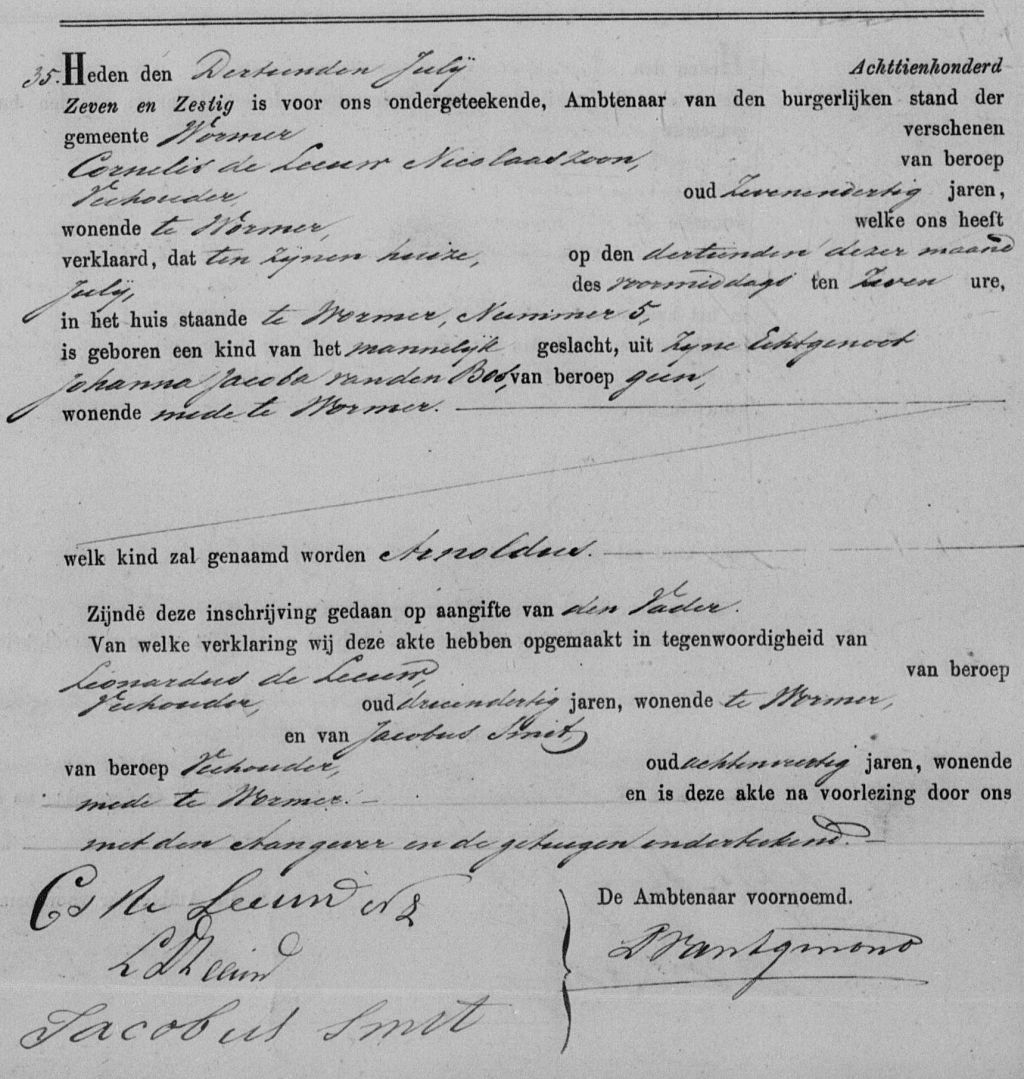 35. Heden den Dertienden July Achttienhonderd
Zeven en Zestig is voor ons ondergeteekende, Ambtenaar van den burgerlijken stand der
gemeente Wormer verschenen
Cornelis de Leeuw Nicolaaszoon, van beroep
Veehouder, oud Zevenendertig jaren,
wonende te Wormer, welke ons heeft
verklaard, dat ten zynen huize, op den dertienden dezer maand
July, des voormiddags ten zeven ure,
in het huis staande te Wormer, Nummer 5,
is geboren een kind van het mannelyk geslacht, uit zyne Echtgenoot
Johanna Jacoba van den Bos, van beroep geen,
wonende mede te Wormer.
welk kind zal genaamd worden Arnoldus.
Zijnde deze inschrijving gedaan op aangifte van den Vader.
Van welke verklaring wij deze akte hebben opgemaakt in tegenwoordigheid van
Leonardus de Leeuw, van beroep
Veehouder, oud drieendertig jaren, wonende te Wormer,
en van Jacobus Smit,
van beroep Veehouder, oud achtenveertig jaren, wonende
mede te Wormer. en is deze akte na voorlezing door ons
met den Aangever en de getuigen onderteekend.
Cs de Leeuw Nz
De Ambtenaar voornoemd.
L D Leeuw
Jacobus Smit